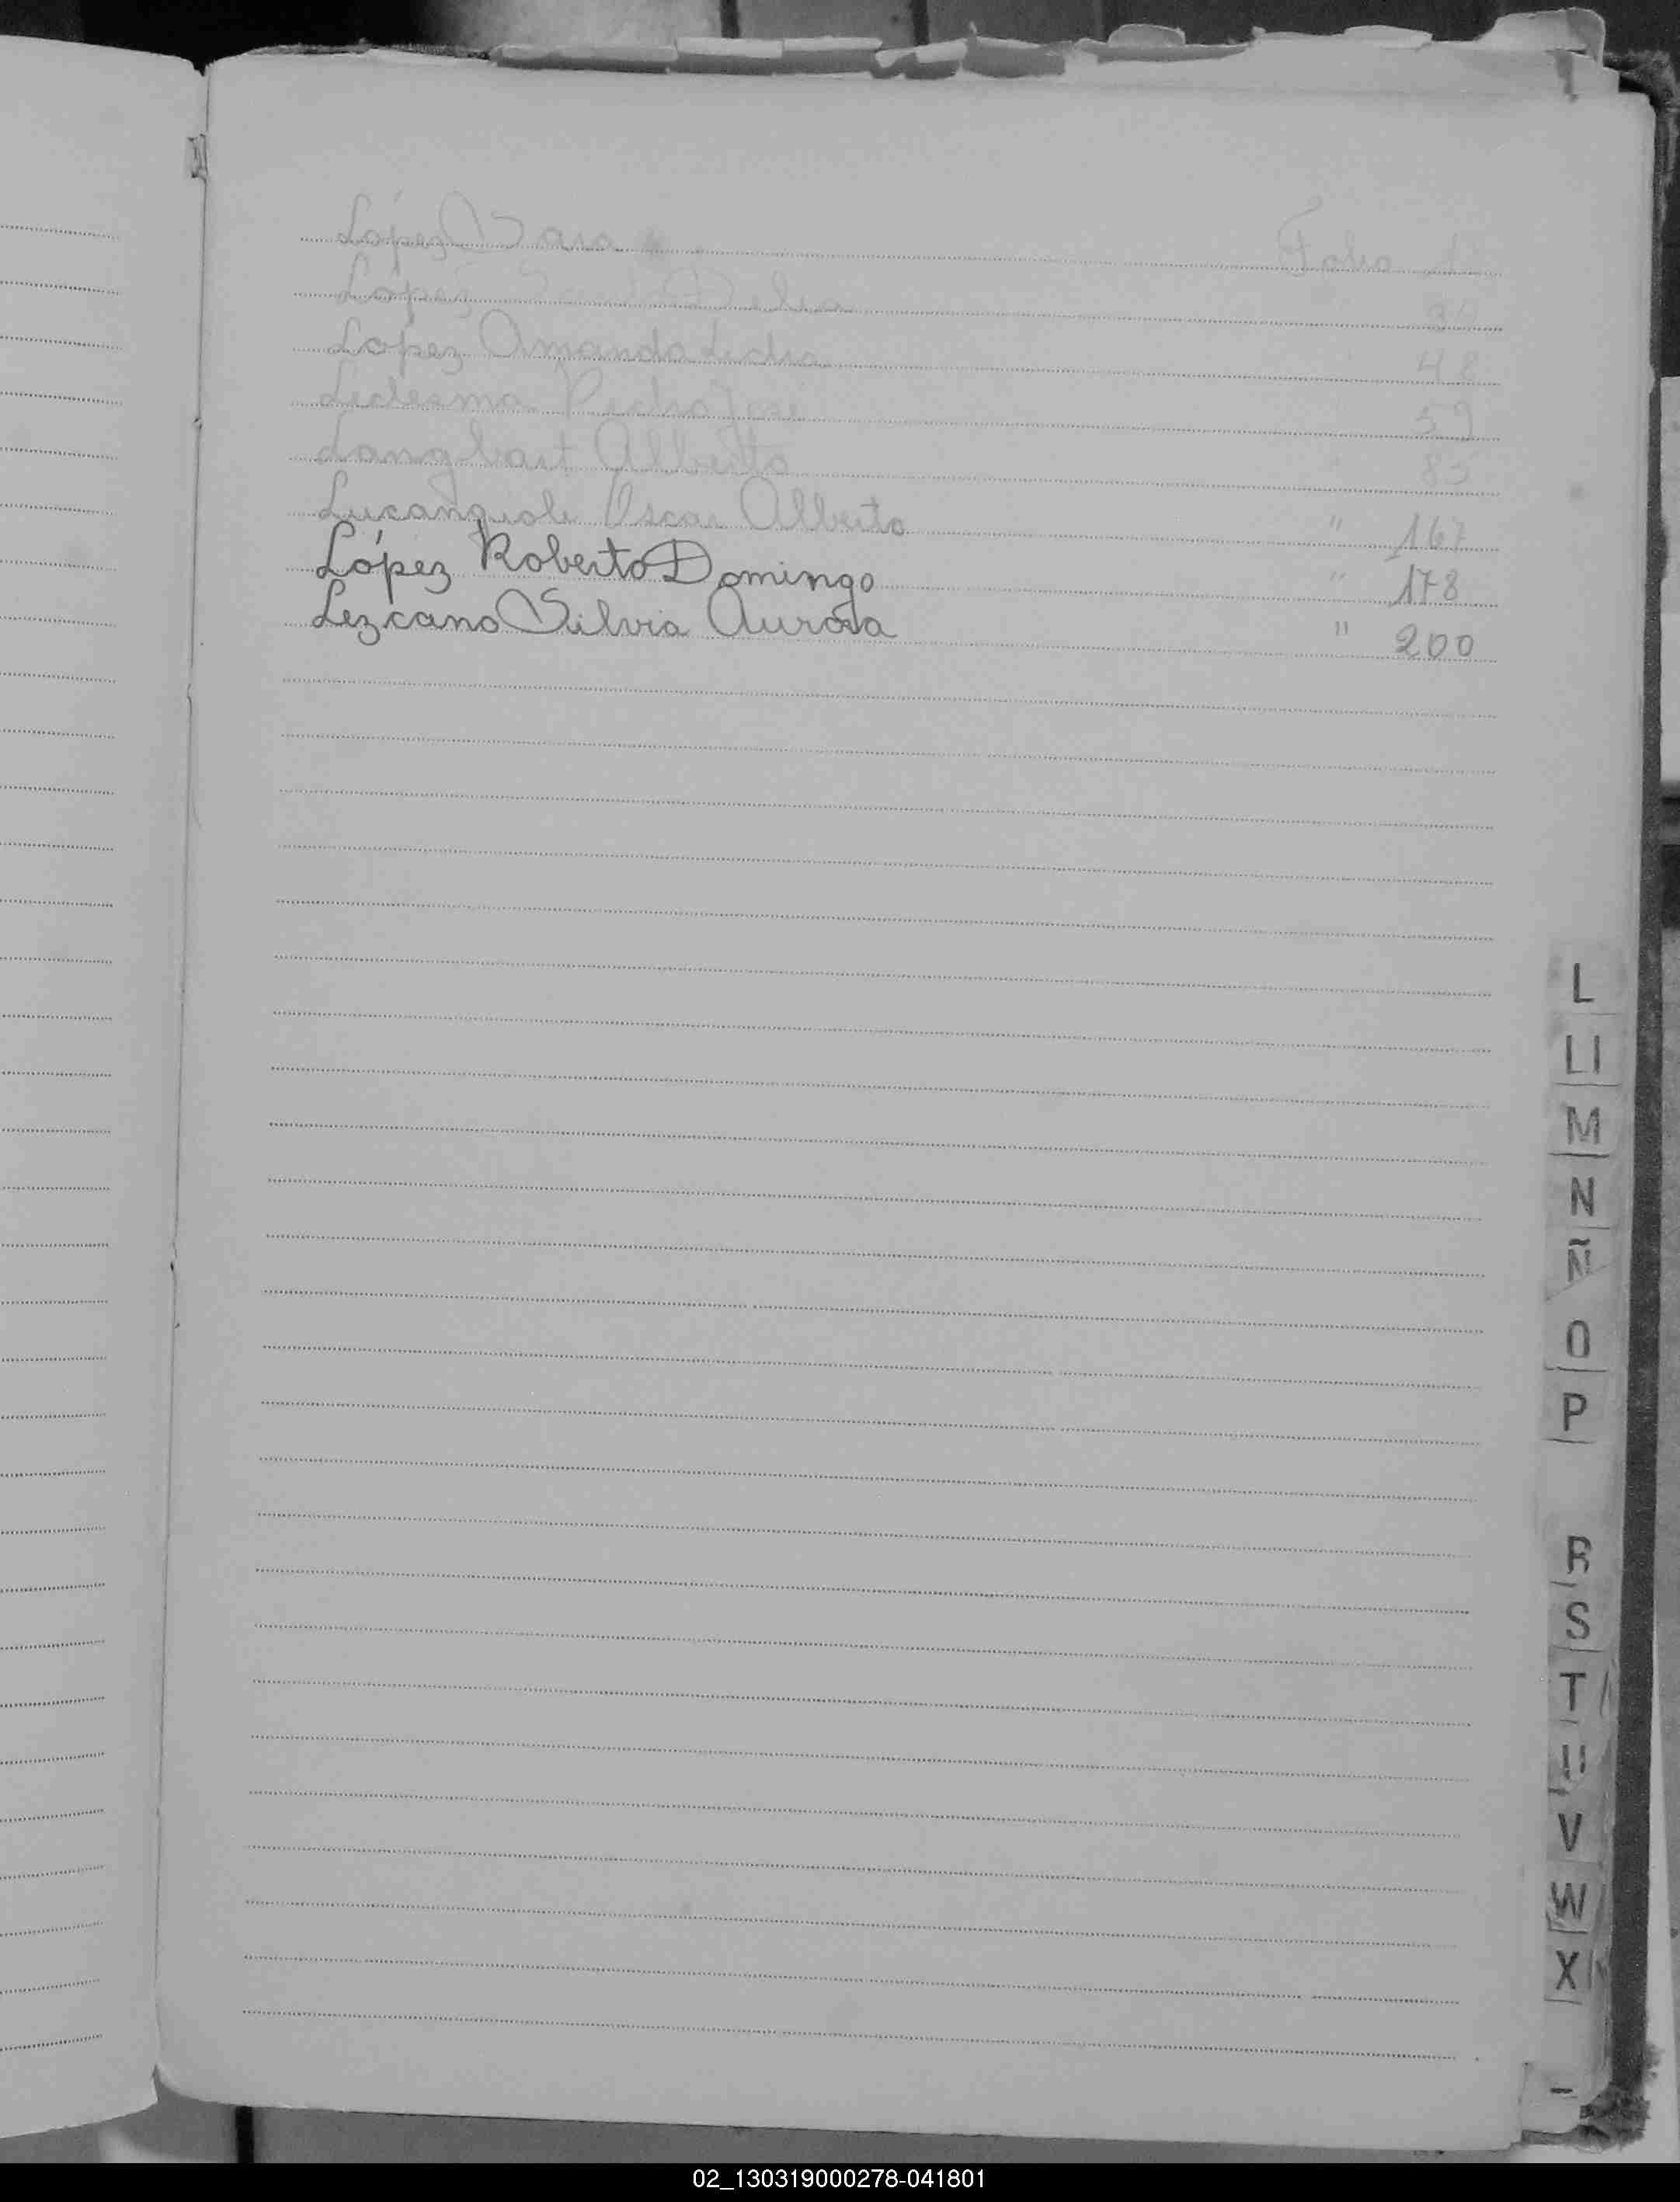 López
Folio
López Delia
López Amanda Lidia 48
Ledesma Pedro José 59
Langbart Alberto 85
Oscar Alberto " 167
López Roberto Domingo " 178
Lezcano Silvia Aurora " 200
L
Ll
M
N
Ñ
O
P
R
S
T
U
V
W
X
02_130319000278-041801